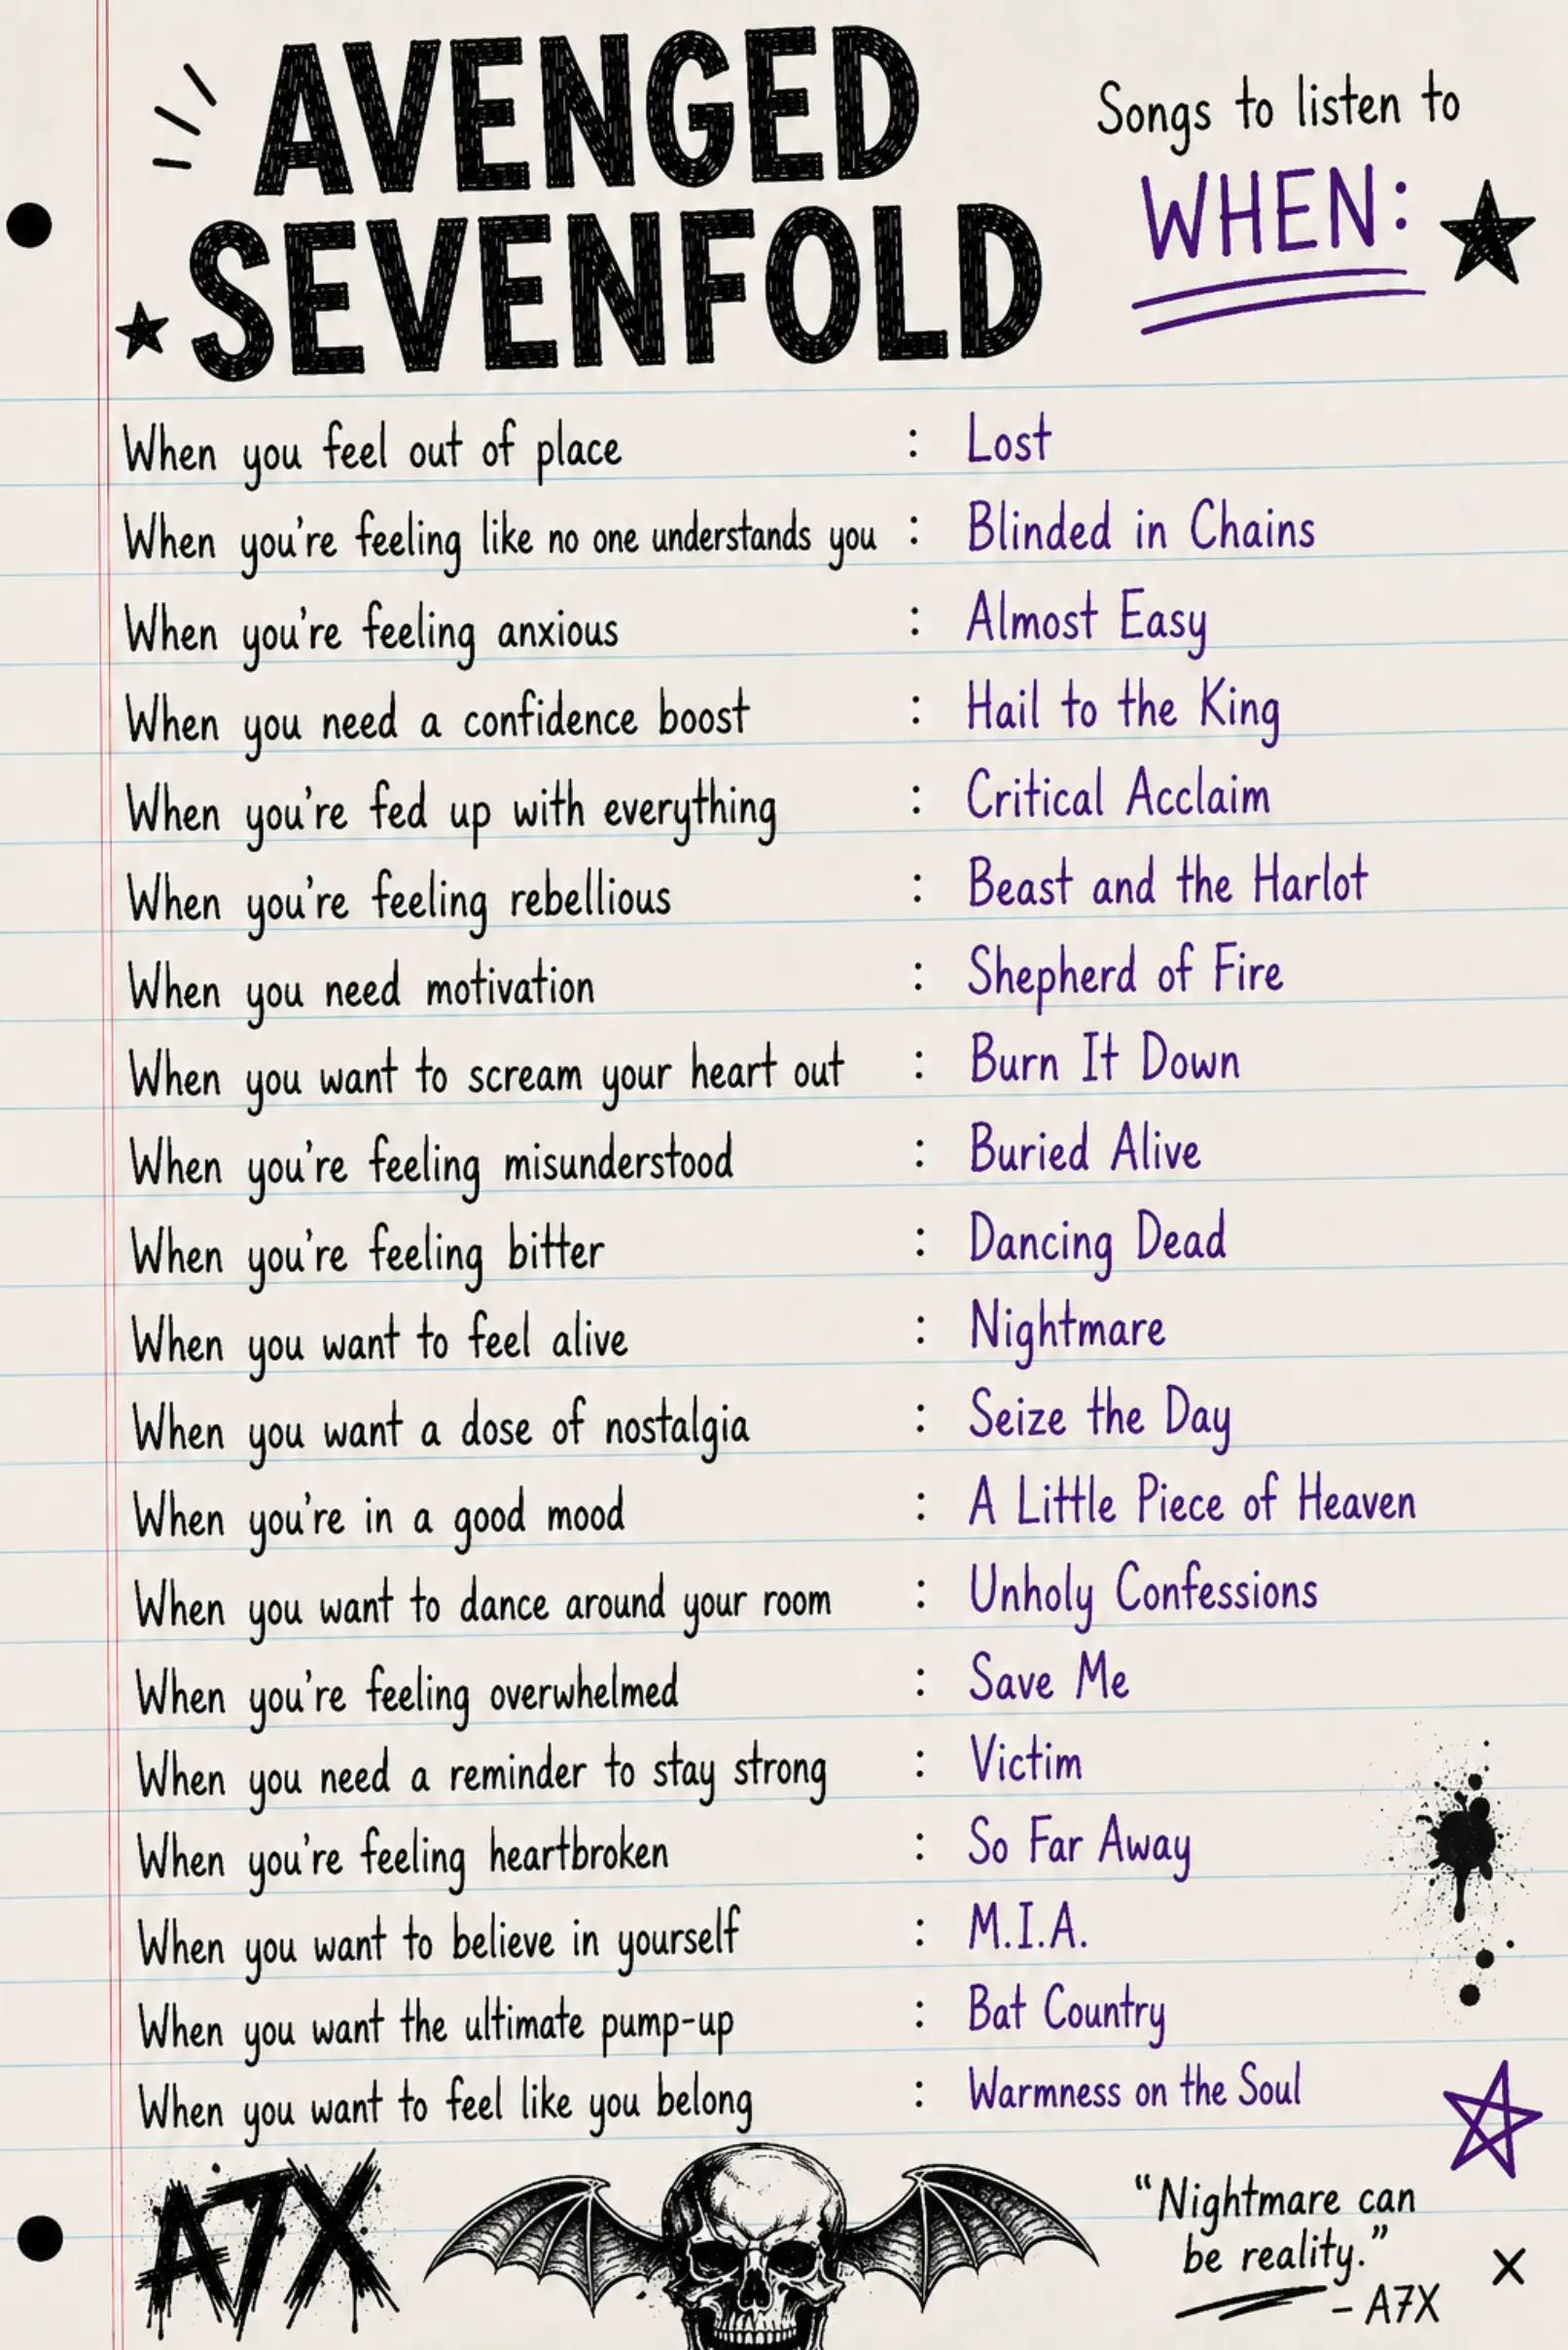 AVENGED
SEVENFOLD
Songs to listen to
WHEN:
When you feel out of place : Lost
When you're feeling like no one understands you : Blinded in Chains
When you're feeling anxious : Almost Easy
When you need a confidence boost : Hail to the King
When you're fed up with everything : Critical Acclaim
When you're feeling rebellious : Beast and the Harlot
When you need motivation : Shepherd of Fire
When you want to scream your heart out : Burn It Down
When you're feeling misunderstood : Buried Alive
When you're feeling bitter : Dancing Dead
When you want to feel alive : Nightmare
When you want a dose of nostalgia : Seize the Day
When you're in a good mood : A Little Piece of Heaven
When you want to dance around your room : Unholy Confessions
When you're feeling overwhelmed : Save Me
When you need a reminder to stay strong : Victim
When you're feeling heartbroken : So Far Away
When you want to believe in yourself : M.I.A.
When you want the ultimate pump-up : Bat Country
When you want to feel like you belong : Warmness on the Soul
A7X
"Nightmare can
be reality."
- A7X